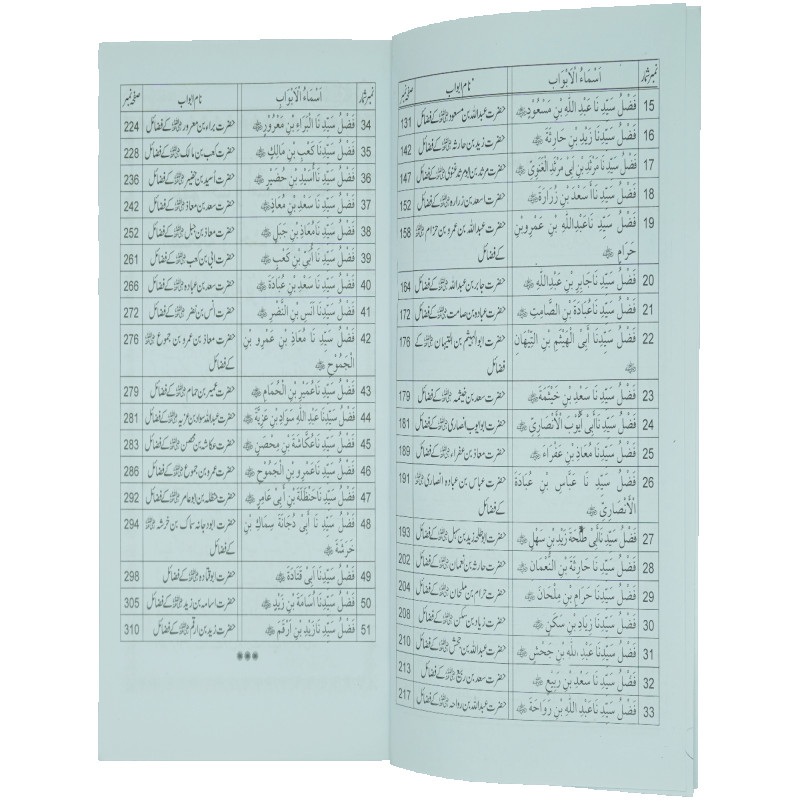 نمبر شمار اَسْمَاءُ الْاَبْوَابِ نام ابواب صفحہ نمبر
15 فَضْلُ سَيِّدِنَا عَبْدِ اللّٰهِ بْنِ مَسْعُوْدٍ ﷛ حضرت عبداللہ بن مسعود ﷛ کے فضائل 131
16 فَضْلُ سَيِّدِنَا زَيْدِ بْنِ حَارِثَةَ ﷛ حضرت زید بن حارثہ ﷛ کے فضائل 142
17 فَضْلُ سَيِّدِنَا مَرْثَدِ بْنِ اَبِيْ مَرْثَدِ الْغَنَوِيِّ ﷛ حضرت مرثد بن ابو مرثد غنوی ﷛ کے فضائل 147
18 فَضْلُ سَيِّدِنَا اَسْعَدَ بْنِ زُرَارَةَ ﷛ حضرت اسعد بن زرارہ ﷛ کے فضائل 152
19 فَضْلُ سَيِّدِ نَاعَبْدِاللّٰهِ بْنِ عَمْرِوبْنِ حضرت عبداللہ بن عمرو بن حرام ﷛ 158
حَرَامٍ ﷛ کے فضائل
20 فَضْلُ سَيِّدِ نَاجَابِرِ بْنِ عَبْدِاللّٰهِ ﷛ حضرت جابر بن عبداللہ ﷛ کے فضائل 164
21 فَضْلُ سَيِّدِنَا عُبَادَةَ بْنِ الصَّامِتِ ﷛ حضرت عبادہ بن صامت ﷛ کے فضائل 172
22 فَضْلُ سَيِّدِنَا اَبِى الْهَيْثَمِ بْنِ التِّيْهَانِ حضرت ابوالہیثم بن التیہان کے 176
فضائل
23 فَضْلُ سَيِّدِنَا سَعْدِ بْنِ خَيْثَمَةَ ﷛ حضرت سعد بن خیثمہ ﷛ کے فضائل 179
24 فَضْلُ سَيِّدِ نَااَبِى اَيُّوْبَ الْاَنْصَارِيِّ ﷛ حضرت ابوایوب انصاری ﷛ کے فضائل 181
25 فَضْلُ سَيِّدِنَا مُعَاذِ بْنِ عَفْرَاءَ ﷛ حضرت معاذ بن عفراء ﷛ کے فضائل 189
26 فَضْلُ سَيِّدِ نَا عَبَّاسِ بْنِ عُبَادَةَ حضرت عباس بن عبادہ انصاری ﷛ 191
الْاَنْصَارِيِّ ﷛ کے فضائل
27 فَضْلُ سَيِّدِ نَااَبِيْ طَلْحَةَ زَيْدِ بْنِ سَهْلٍ ﷛ حضرت ابوطلحہ زید بن سہل ﷛ کے فضائل 193
28 فَضْلُ سَيِّدِ نَا حَارِثَةَ بْنِ النُّعْمَانِ ﷛ حضرت حارثہ بن نعمان ﷛ کے فضائل 202
29 فَضْلُ سَيِّدِنَا حَرَامِ بْنِ مِلْحَانَ ﷛ حضرت حرام بن ملحان ﷛ کے فضائل 204
30 فَضْلُ سَيِّدِنَا زِيَادِ بْنِ سَكَنٍ ﷛ حضرت زیاد بن سکن ﷛ کے فضائل 208
31 فَضْلُ سَيِّدِنَا عَبْدِ اللّٰهِ بْنِ جَحْشٍ ﷛ حضرت عبداللہ بن جحش ﷛ کے فضائل 210
32 فَضْلُ سَيِّدِنَا سَعْدِ بْنِ رَبِيْعٍ ﷛ حضرت سعد بن ربیع ﷛ کے فضائل 213
33 فَضْلُ سَيِّدِ نَاعَبْدِ اللّٰهِ بْنِ رَوَاحَةَ ﷛ حضرت عبداللہ بن رواحہ ﷛ کے فضائل 217
نمبر شمار اَسْمَاءُ الْاَبْوَابِ نام ابواب صفحہ نمبر
34 فَضْلُ سَيِّدِ نَا الْبَرَاءِ بْنِ مَعْرُوْرٍ ﷛ حضرت براء بن معرور ﷛ کے فضائل 224
35 فَضْلُ سَيِّدِنَا كَعْبِ بْنِ مَالِكٍ ﷛ حضرت کعب بن مالک ﷛ کے فضائل 228
36 فَضْلُ سَيِّدِ نَااُسَيْدِ بْنِ حُضَيْرٍ ﷛ حضرت اُسید بن حضیر ﷛ کے فضائل 236
37 فَضْلُ سَيِّدِنَا سَعْدِ بْنِ مُعَاذٍ ﷛ حضرت سعد بن معاذ ﷛ کے فضائل 242
38 فَضْلُ سَيِّدِ نَامُعَاذِ بْنِ جَبَلٍ ﷛ حضرت معاذ بن جبل ﷛ کے فضائل 252
39 فَضْلُ سَيِّدِ نَا اُبَيِّ بْنِ كَعْبٍ ﷛ حضرت ابی بن کعب ﷛ کے فضائل 261
40 فَضْلُ سَيِّدِنَا سَعْدِ بْنِ عُبَادَةَ ﷛ حضرت سعد بن عبادہ ﷛ کے فضائل 266
41 فَضْلُ سَيِّدِنَا اَنَسِ بْنِ النَّضْرِ ﷛ حضرت انس بن نضر ﷛ کے فضائل 272
42 فَضْلُ سَيِّدِ نَا مُعَاذِ بْنِ عَمْرِو بْنِ حضرت معاذ بن عمرو بن جموع ﷛ 276
الْجَمُوْحِ ﷛ کے فضائل
43 فَضْلُ سَيِّدِ نَاعُمَيْرِ بْنِ الْحُمَامِ ﷛ حضرت عمیر بن حمام ﷛ کے فضائل 279
44 فَضْلُ سَيِّدِنَا عَبْدِ اللّٰهِ سَوَادِ بْنِ غَزِيَّةَ ﷛ حضرت عبداللہ سواد بن غزیہ ﷛ کے فضائل 281
45 فَضْلُ سَيِّدِ نَاعُكَّاشَةَ بْنِ مِحْصَنٍ ﷛ حضرت عکاشہ بن محصن ﷛ کے فضائل 283
46 فَضْلُ سَيِّدِ نَاعَمْرِو بْنِ الْجَمُوْحِ ﷛ حضرت عمرو بن جموع ﷛ کے فضائل 286
47 فَضْلُ سَيِّدِ نَاحَنْظَلَةَ بْنِ اَبِيْ عَامِرٍ ﷛ حضرت حنظلہ بن ابو عامر ﷛ کے فضائل 292
48 فَضْلُ سَيِّدِ نَا اَبِيْ دُجَانَةَ سِمَاكِ بْنِ حضرت ابودجانہ سماک بن خرشہ ﷛ 294
خَرَشَةَ ﷛ کے فضائل
49 فَضْلُ سَيِّدِنَا اَبِيْ قَتَادَةَ ﷛ حضرت ابوقتادہ ﷛ کے فضائل 298
50 فَضْلُ سَيِّدِنَا اُسَامَةَ بْنِ زَيْدٍ ﷛ حضرت اسامہ بن زید ﷛ کے فضائل 305
51 فَضْلُ سَيِّدِ نَازَيْدِ بْنِ اَرْقَمَ ﷛ حضرت زید بن ارقم ﷛ کے فضائل 310